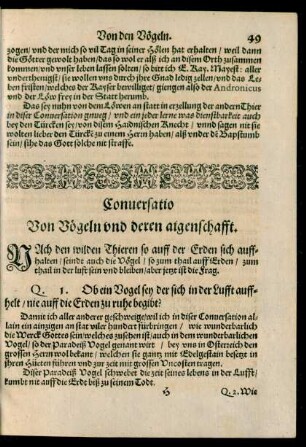 Von den Vögeln. 49
zogen / vnd der mich so vil Tag in seiner Hölen hat erhalten / weil dann
die Götter gewolt haben / das so wol er als ich an disem Orth zusammen
kommen / vnd vnser leben lassen solten / so bitt ich E. Kay. Mayest: aller
vnderthenigst / sie wollen vns durch jhre Gnad ledig zellen / vnd das Le-
ben fristen / welches der Kayser bewilliget / giengen also der Andronicus
vnd der Löw frey in der Statt herumb.
Das sey nuhn von dem Löwen an statt in erzellung der andern Thier
in diser Conuersation gnueg / vnd ein jeder lerne was dienstbarkait auch
bey den Türcken sey von disem Haidnischen Knecht / vnnd sagen nit sie
wolten lieber den Türckẽ zu einem Herrn haben / alß vnder dẽ Bapstumb
sein / sihe das Gott solche nit straffe.
Conuersatio
Von Vögeln vnd deren aigenschafft.
NAch den wilden Thieren so auff der Erden sich auff-
halten / seindt auch die Vögel / so zum thail auff Erden / zum
thail in der lufft sein vnd bleiben / aber jetzt ist die Frag.
Q. 1. Ob ein Vogel sey der sich in der Lufft auff-
helt / nie auff die Erden zu ruhe begibt?
Damit ich aller anderer geschweige / will ich in diser Conversation al-
lain ein ainzigen an stat viler hundert fürbringen / wie wunderbarlich
die Werck Gottes sein / welches zusehen ist / auch in dem wunderbarlichen
Vogel / so der Paradeiß Vogel genant wirt / bey vns in Osterreich den
grossen Herrn wol bekant / welchen sie gantz mit Edelgestain besetzt in
jhren Hüeten führen vnd zur zeit mit grossen Vncosten tragen.
Diser Paradeiß Vogel schwebet die zeit seines lebens in der Lufft /
kumbt nit auff die Erdt biß zu seinem Todt.
H Q. 2. Wie